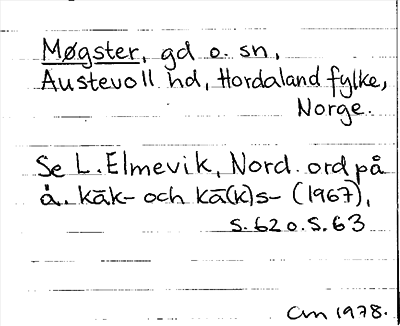 Møgster, gd o. sn,
Austevoll hd, Hordaland fylke,
Norge.
Se L. Elmevik, Nord. ord på
å. kāk- och kā(k)s- (1967),
s. 62 o. s. 63
Cm 1978.